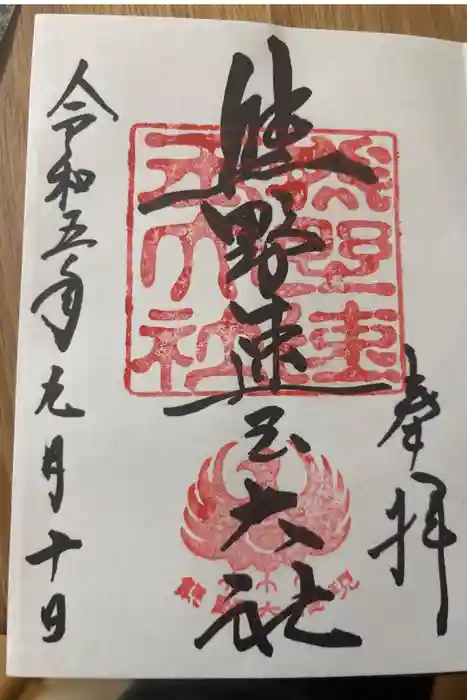 奉拝
熊野速玉大社
熊野速
玉大社
令和五年九月十日